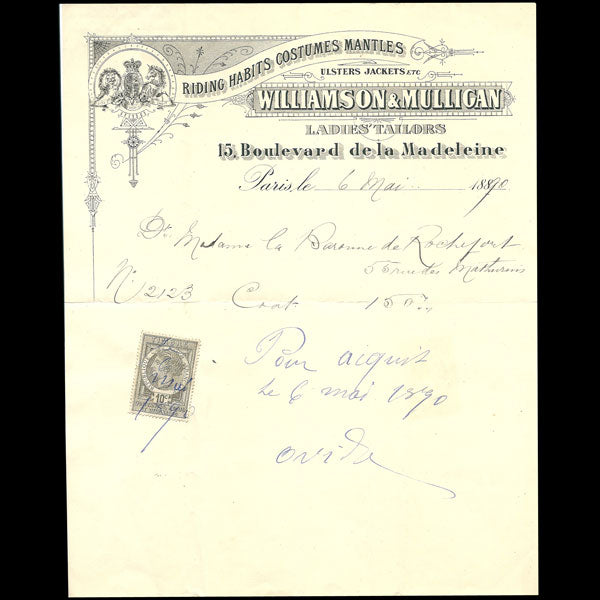 RIDING HABITS COSTUMES MANTLES
ULSTERS JACKETS ETC
WILLIAMSON & MULLIGAN
LADIES' TAILORS
15, Boulevard de la Madeleine
Paris, le 6 Mai 1890
Dt. Madame la Baronne de Rochefort
rue des Mathurins
No 2123 Coat 150
Pour acquit
Le 6 mai 1890
ovide
10